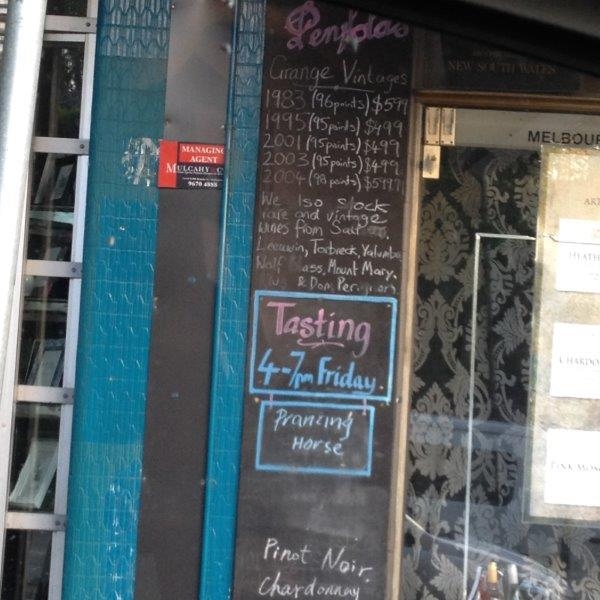 Penfolds
Grange Vintages
1983 (96 points) $599
1995 (95 points) $499
2001 (95 points) $499
2003 (95 points) $499
2004 (98 points)
We lso stock
rare and vintage
wines from
Leeuwin, Torbreck, Yalumba
Wolf ass, Mount Mary,
& Dom Perignon
Tasting
4-7pm Friday
Prancing
Horse
Pinot Noir.
Chardonnay
MANAGING
AGENT
MULCAHY
9670 4888
NEW SOUTH WALES
MELBOU
HEATH
CHARDO
PINK MOS